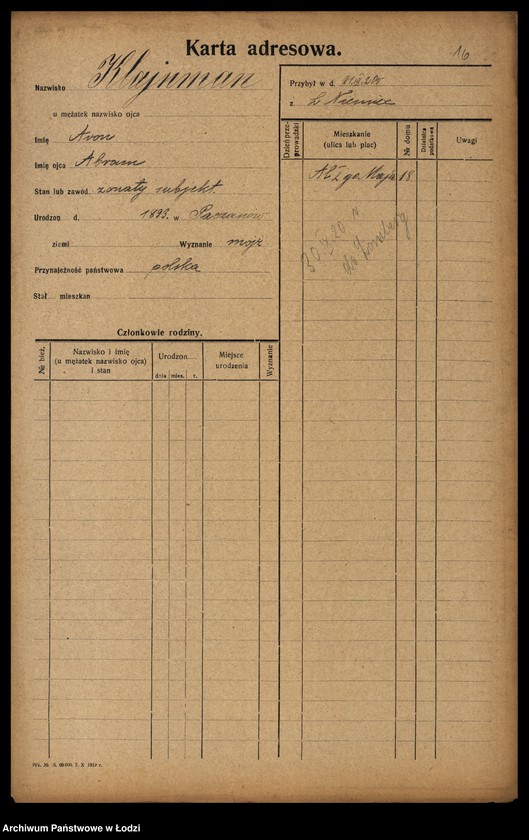 Karta adresowa.
16
Nazwisko Klajnman
u mężatek nazwisko ojca
Imię Aron
Imię ojca Abram
Stan lub zawód żonaty subjekt
Urodzon d. 1893 w Pacanów
ziemi Wyznanie mojż
Przynależność państwowa polska
Stał. mieszkan
Przybył w d.
z z Niemiec
Dzień przeprowadzki
Mieszkanie
(ulica lub plac)
№ domu
Dzielnica podatkowa
Uwagi
Maja 18
30 X 20 r
do
Członkowie rodziny.
№ bież.
Nazwisko i imię
(u mężatek nazwisko ojca)
i stan
Urodzon....
dnia mies. r.
Miejsce
urodzenia
Wyznanie
Archiwum Państwowe w Łodzi